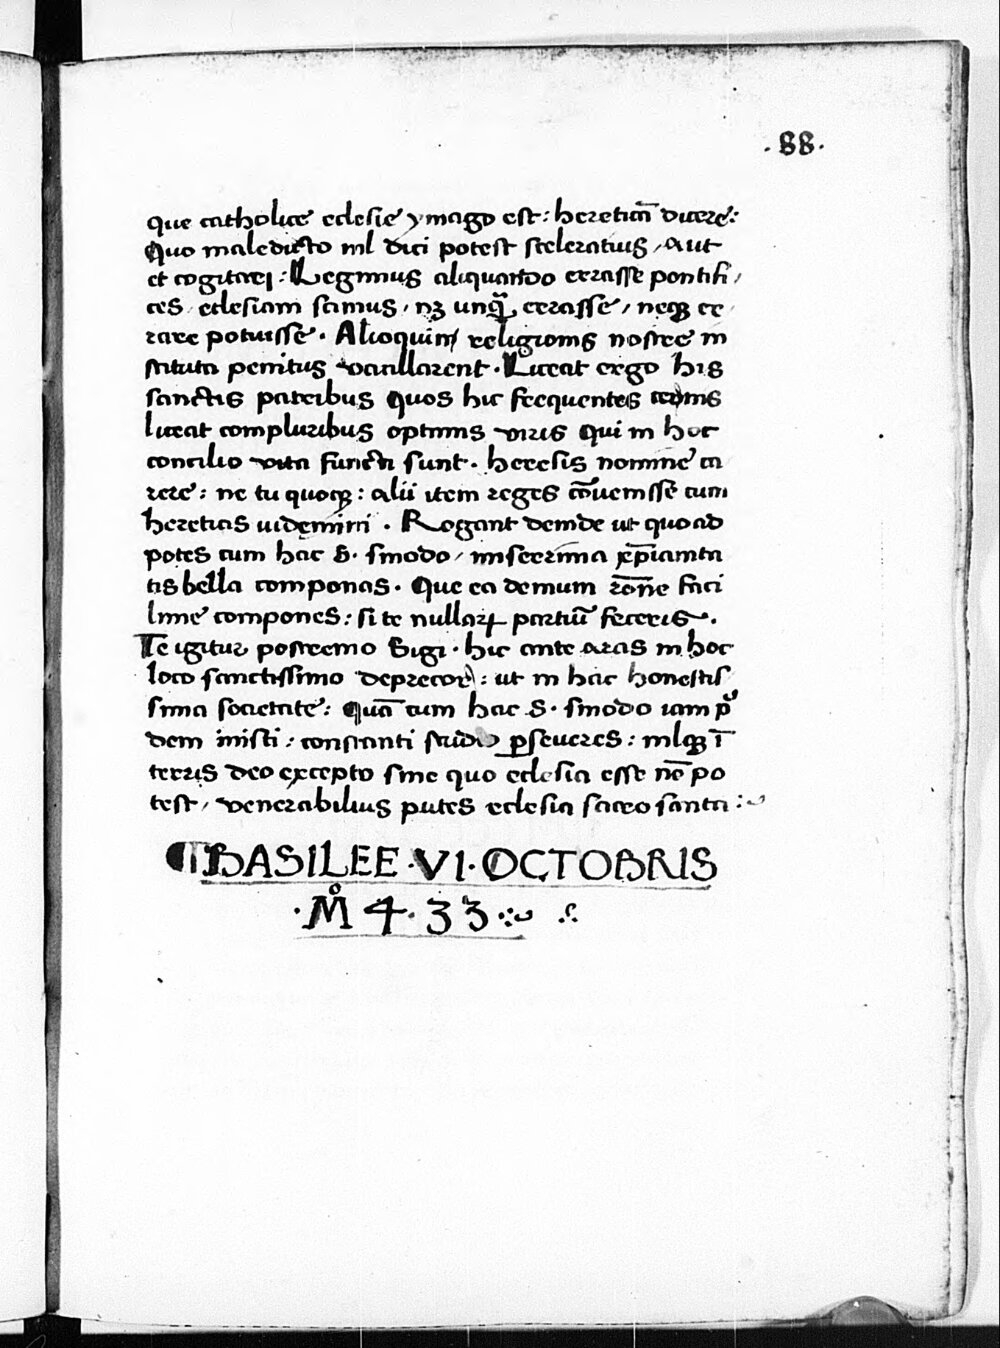 .88.
que catholice eclesie ymago est: hereticā dicere:
Quo maledicto nil dici potest sceleratius, aut
et cogitarej: Legimus aliquando errasse pontifi,
ces, eclesiam scimus, nz unqꝫ errasse, neqꝫ er
rare potuisse. Alioquin religionis nostre in
stituta penitus vacillarent. Liceat ergo his
sanctis patribus quos hic frequentes cernis
liceat compluribus optimis viris qui in hoc
concilio vita functi sunt. heresis nomine ca
rere: ne tu quoqꝫ: alii item reges cōuenisse cum
hereticis uidemini. Rogant deinde ut quoad
potes cum hac S. sinodo, miserrima xp̄iamta
tis bella componas. Que ea demum rōne faci
lime compones: si te nullarꝝ partiū feceris.
Te igitur postremo Sigi. hic ante aras in hoc
loco sanctissimo deprecor: ut in hac honestis
sima societate: quā cum hac S. sinodo iam pͥ
dem inisti: constanti studio ꝑseueres: nilqꝫ ī
terris deo excepto sine quo eclesia esse nō po
test, venerabilius putes eclesia sacro santa:
¶BASILEE.VI.OCTOBRIS
.M̊ 4.33